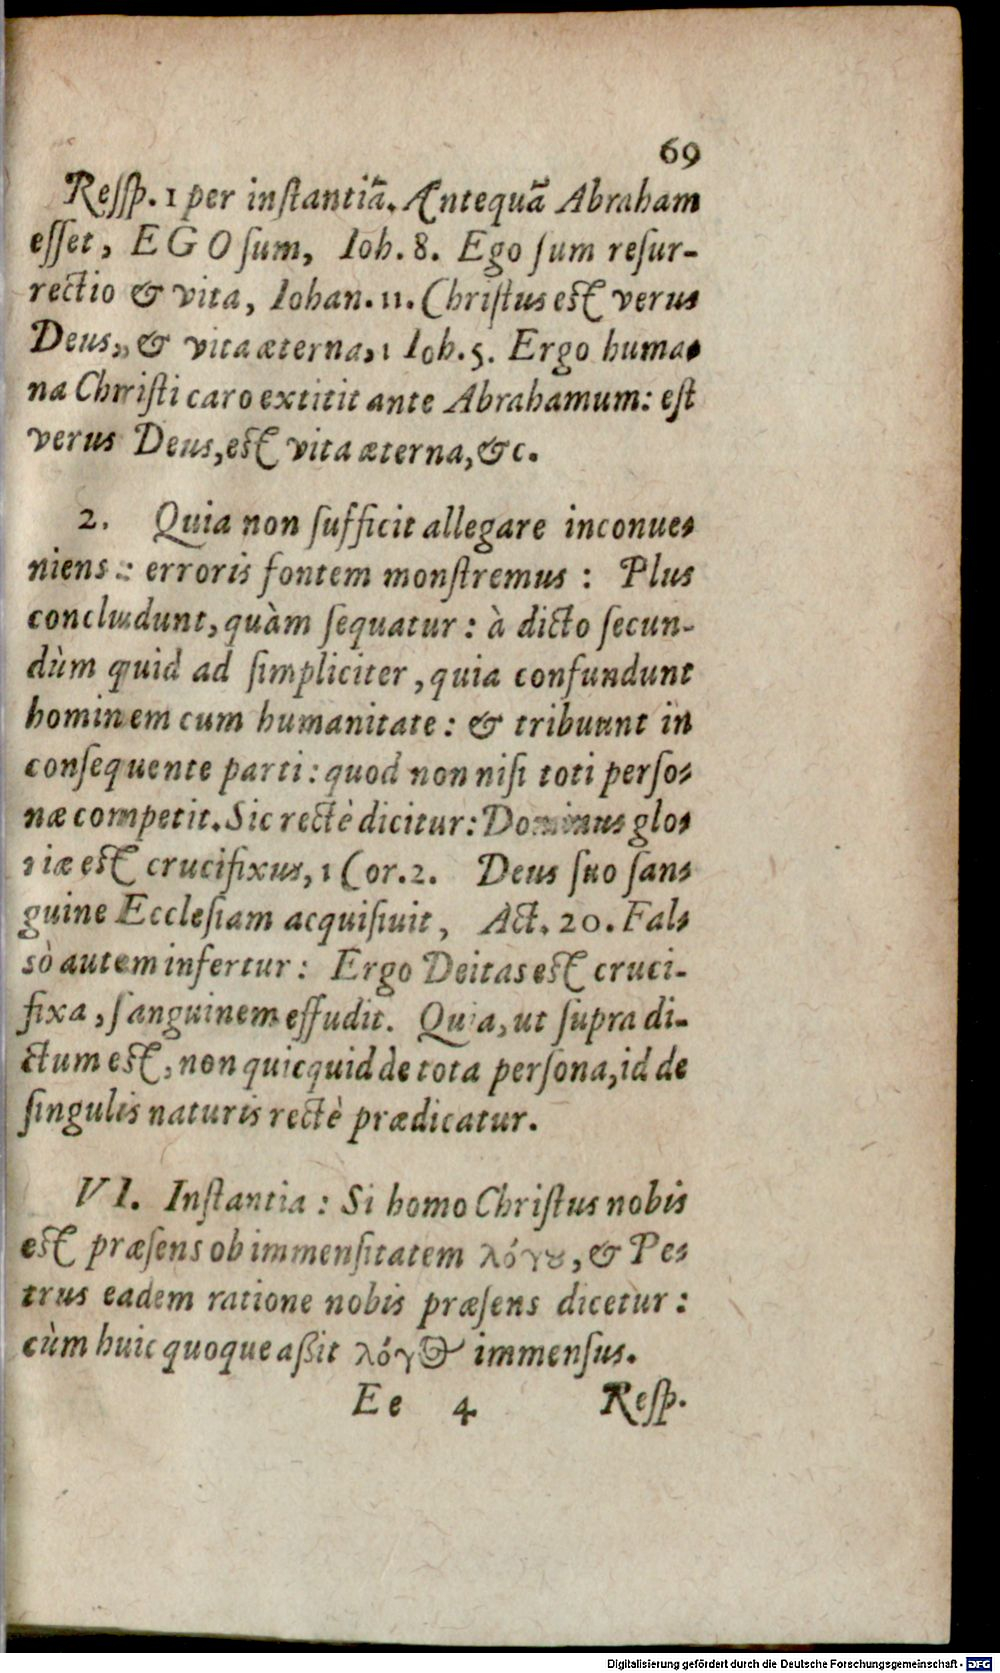 69
Reſſp. 1 per inſtantiã. Antequã Abraham
eſſet, EGO ſum, Ioh. 8. Ego ſum reſur-
rectio & vita, Iohan. 11. Chriſtus eſt verus
Deus, & vita æterna, 1 Ioh. 5. Ergo huma-
na Chriſti caro extitit ante Abrahamum: eſt
verus Deus, eſt vita æterna, &c.
2. Quia non ſufficit allegare inconue-
niens: erroris fontem monſtremus: Plus
concludunt, quàm ſequatur: à dicto ſecun-
dùm quid ad ſimpliciter, quia confundunt
hominem cum humanitate: & tribuunt in
conſequente parti: quod non niſi toti perſo-
næ competit. Sic rectè dicitur: Dominus glo-
riæ eſt crucifixus, 1 Cor. 2. Deus ſuo ſan-
guine Eccleſiam acquiſiuit, Act. 20. Fal-
sò autem infertur: Ergo Deitas eſt cruci-
fixa, ſanguinem effudit. Quia, ut ſupra di-
ctum eſt, non quicquid de tota perſona, id de
ſingulis naturis rectè prædicatur.
VI. Inſtantia: Si homo Chriſtus nobis
eſt præſens ob immenſitatem λόγȣ, & Pe-
trus eadem ratione nobis præſens dicetur:
cùm huic quoque aßit λόγος immenſus.
Ee 4 Reſp.
Digitalisierung gefördert durch die Deutsche Forschungsgemeinschaft - DFG